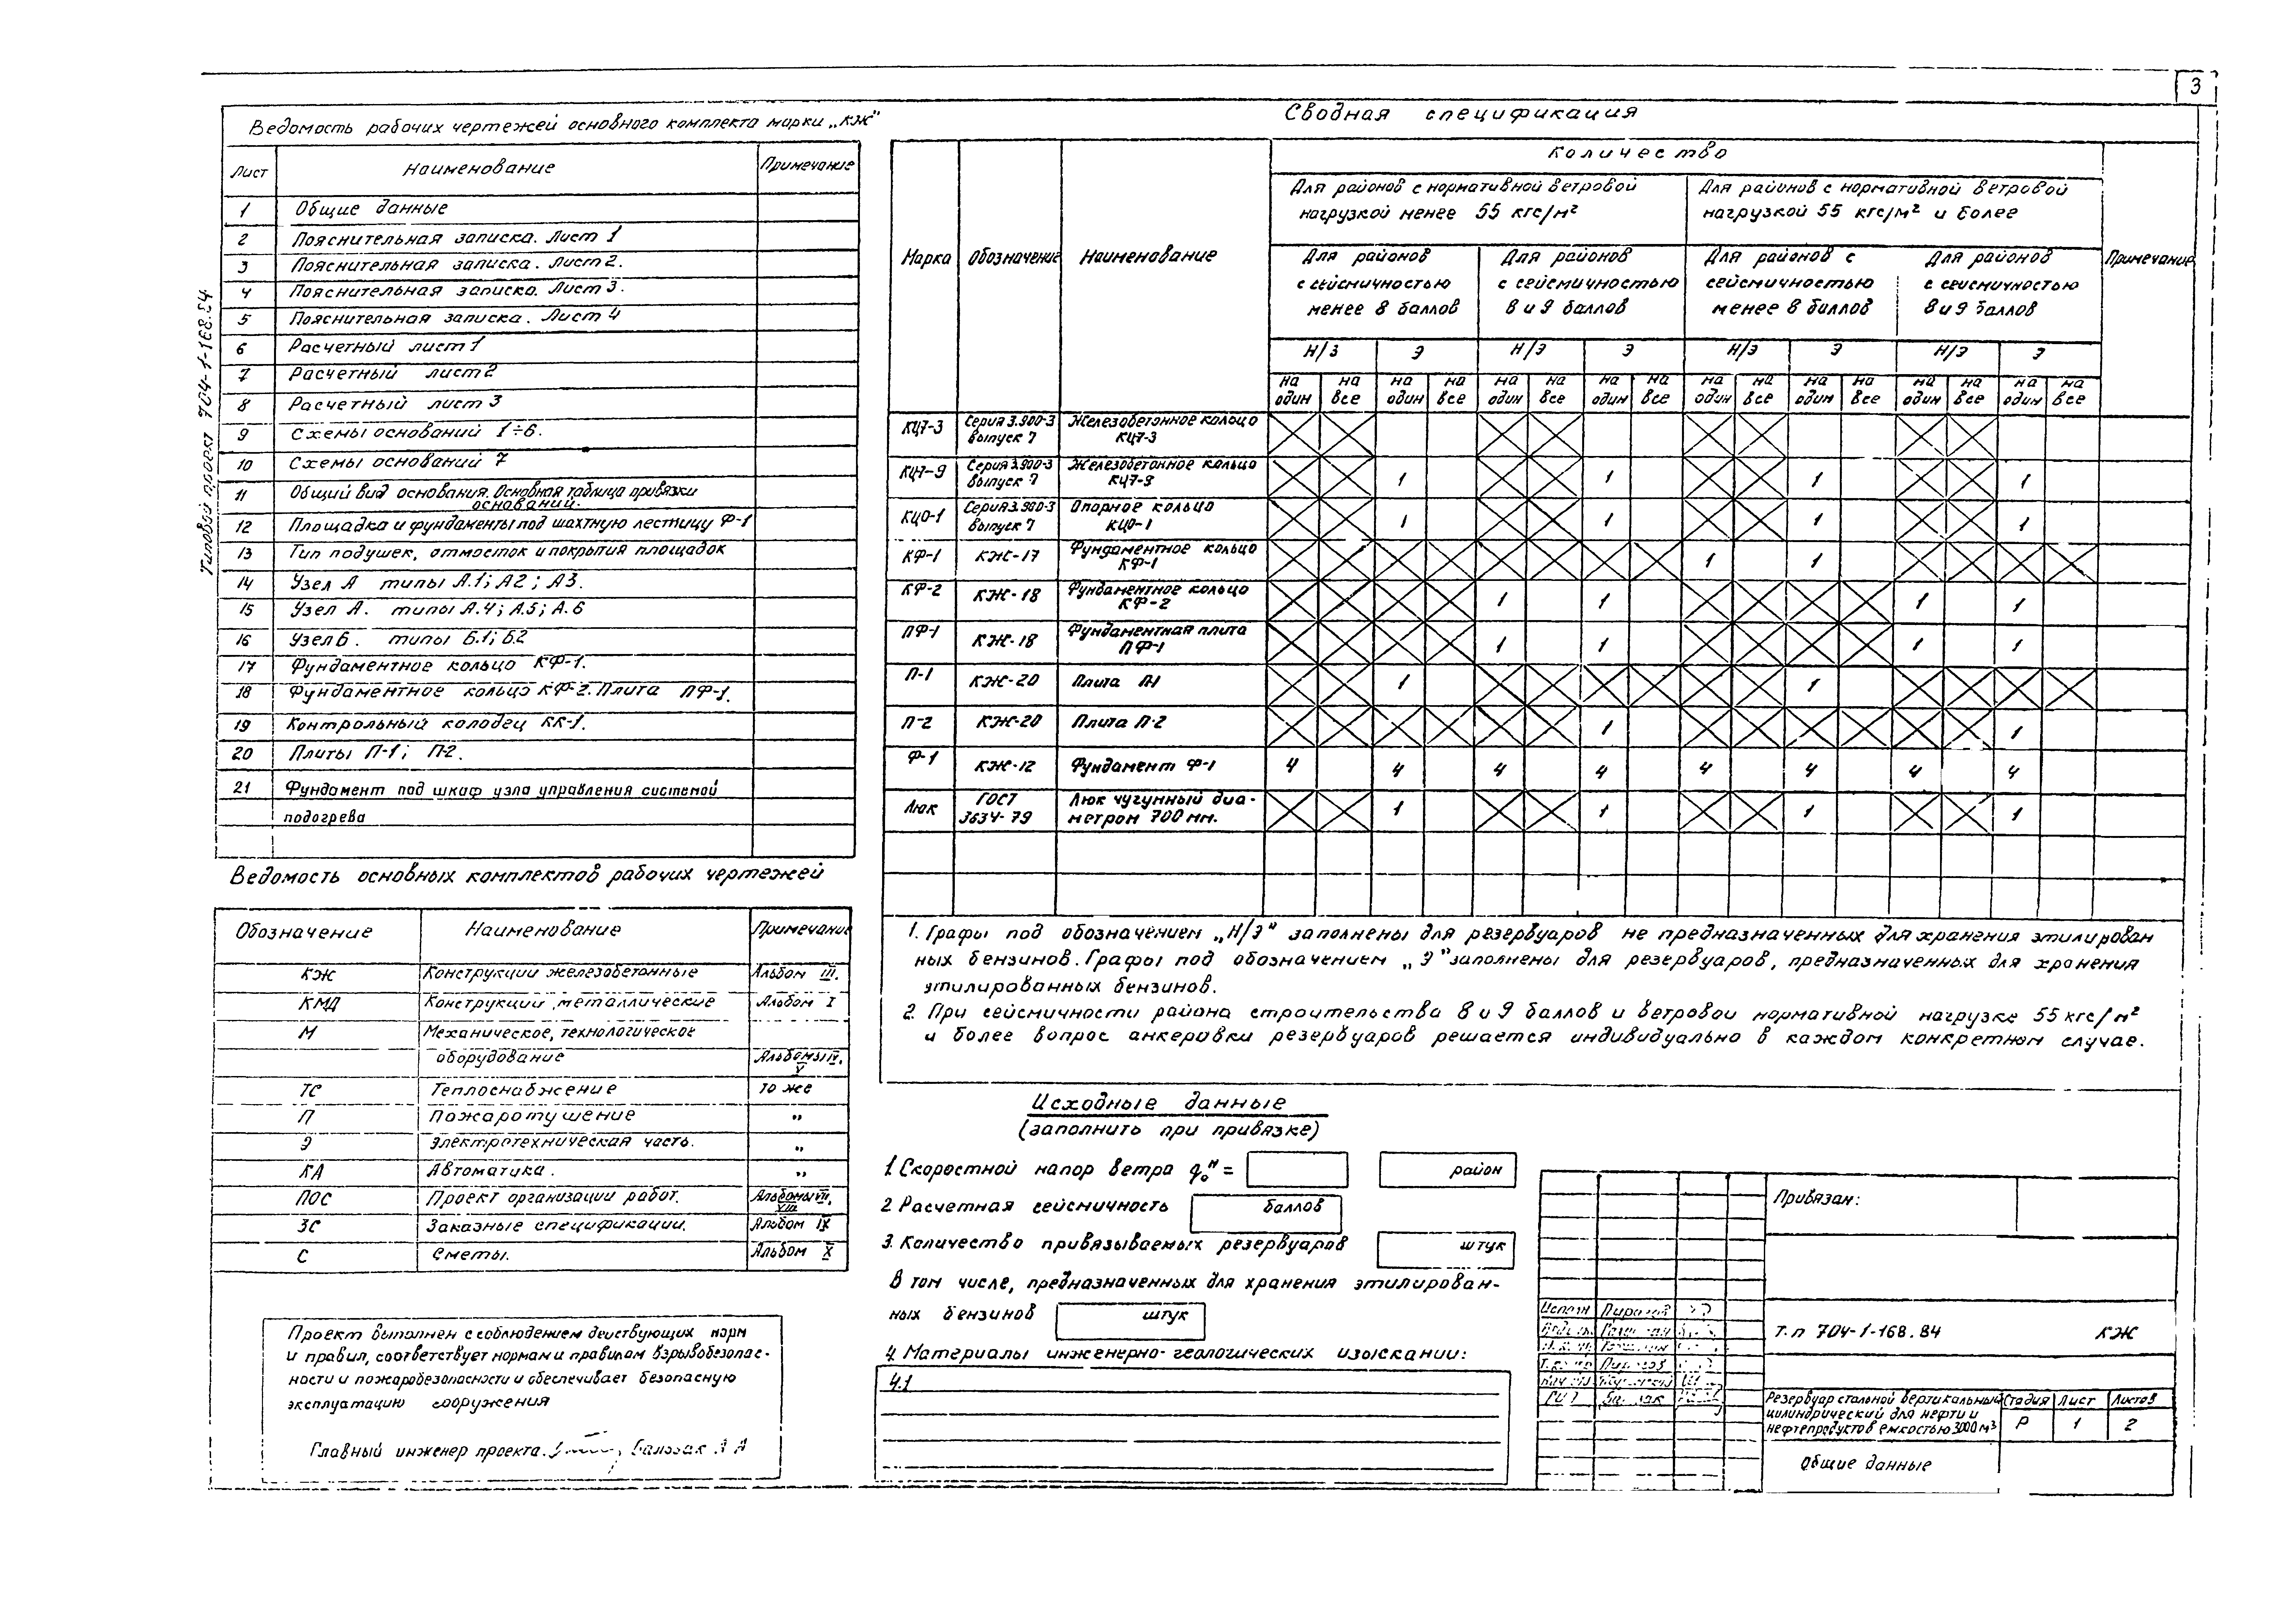 3
Типовой проект 704-1-168.84
Ведомость рабочих чертежей основного комплекта марки „КЖ"
Лист Наименование Примечание
1 Общие данные
2 Пояснительная записка. Лист 1
3 Пояснительная записка. Лист 2.
4 Пояснительная записка. Лист 3.
5 Пояснительная записка. Лист 4
6 Расчетный лист 1
7 Расчетный лист 2
8 Расчетный лист 3
9 Схемы оснований 1÷6.
10 Схемы оснований 7
11 Общий вид основания. Основная таблица привязки
оснований.
12 Площадка и фундаменты под шахтную лестницу Ф-1
13 Тип подушек, отмосток и покрытия площадок
14 Узел А типы А.1; А2; А3.
15 Узел А. типы А.4; А.5; А.6
16 Узел Б. типы Б.1; Б.2
17 Фундаментное кольцо КФ-1.
18 Фундаментное кольцо КФ-2. Плита ПФ-1.
19 Контрольный колодец КК-1.
20 Плиты П-1; П-2.
21 Фундамент под шкаф узла управления системой
подогрева
Ведомость основных комплектов рабочих чертежей
Обозначение Наименование Примечание
КЖ Конструкции железобетонные Альбом III.
КМД Конструкции металлические Альбом I
М Механическое, технологическое
оборудование Альбомы IV,
V
ТС Теплоснабжение то же
П Пожаротушение „
Э Электротехническая часть. „
КА Автоматика. „
ПОС Проект организации работ. Альбомы VII,
VIII
ЗС Заказные спецификации. Альбом IX
С Сметы. Альбом X
Проект выполнен с соблюдением действующих норм
и правил, соответствует нормам и правилам взрывобезопас-
ности и пожаробезопасности и обеспечивает безопасную
эксплуатацию сооружения
Главный инженер проекта.
Сводная спецификация
Марка Обозначение Наименование Количество Примечание
Для районов с нормативной ветровой
нагрузкой менее 55 кгс/м²
Для районов с нормативной ветровой
нагрузкой 55 кгс/м² и более
Для районов
с сейсмичностью
менее 8 баллов
Для районов
с сейсмичностью
8 и 9 баллов
Для районов с
сейсмичностью
менее 8 баллов
Для районов
с сейсмичностью
8 и 9 баллов
Н/Э Э Н/Э Э Н/Э Э Н/Э Э
на один на все на один на все на один на все на один на все на один на все на один на все на один на все на один на все
КЦ7-3 Серия 3.900-3 Железобетонное кольцо
выпуск 7 КЦ7-3
КЦ7-9 Серия 3.900-3 Железобетонное кольцо
выпуск 7 КЦ7-9 1 1 1 1
КЦО-1 Серия 3.900-3 Опорное кольцо
выпуск 7 КЦО-1 1 1 1 1
КФ-1 КЖ-17 Фундаментное кольцо
КФ-1 1 1
КФ-2 КЖ-18 Фундаментное кольцо
КФ-2 1 1 1 1
ПФ-1 КЖ-18 Фундаментная плита
ПФ-1 1 1 1 1
П-1 КЖ-20 Плита П-1 1 1
П-2 КЖ-20 Плита П-2 1 1
Ф-1 КЖ-12 Фундамент Ф-1 4 4 4 4 4 4 4 4
Люк ГОСТ Люк чугунный диа-
3634-79 метром 700 мм. 1 1 1 1
1. Графы под обозначением „Н/Э" заполнены для резервуаров не предназначенных для хранения этилирован
ных бензинов. Графы под обозначением „Э" заполнены для резервуаров, предназначенных для хранения
этилированных бензинов.
2. При сейсмичности района строительства 8 и 9 баллов и ветровой нормативной нагрузке 55 кгс/м²
и более вопрос анкеровки резервуаров решается индивидуально в каждом конкретном случае.
Исходные данные
(заполнить при привязке)
1. Скоростной напор ветра q₀ᴴ = район
2. Расчетная сейсмичность баллов
3. Количество привязываемых резервуаров штук
В том числе, предназначенных для хранения этилирован-
ных бензинов штук
4. Материалы инженерно-геологических изысканий:
4.1
Привязан:
Т.п 704-1-168.84 КЖ
Резервуар стальной вертикальный
цилиндрический для нефти и
нефтепродуктов емкостью 3000 м³
Стадия Лист Листов
Р 1 2
Общие данные